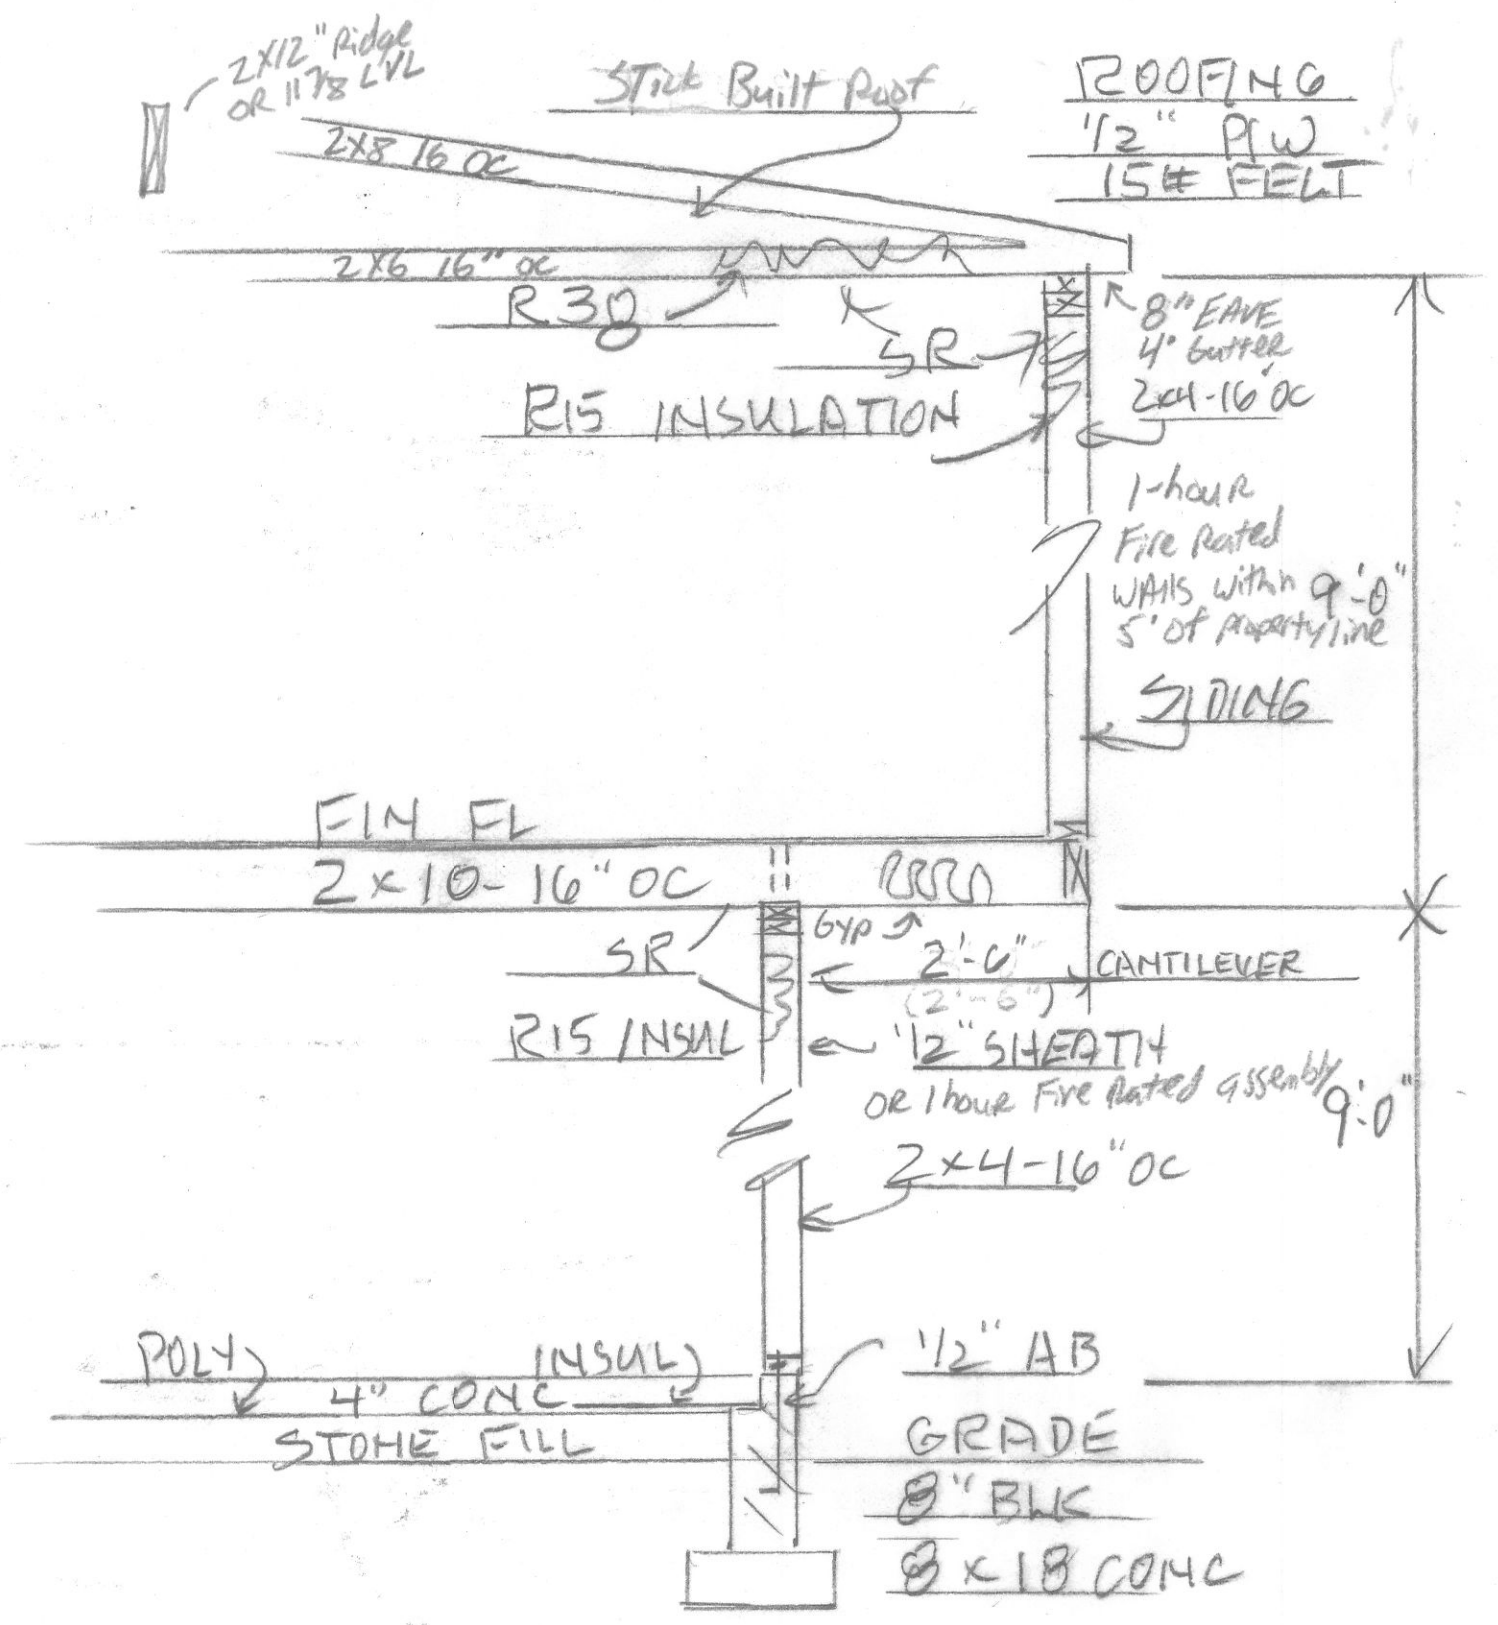 2x12" Ridge
OR 11 7/8 LVL
Stick Built Roof
ROOFING
1/2" PLW
15# FELT
2x8 16 OC
2x6 16" OC
R38
SR
8" EAVE
4" Gutter
2x4-16" OC
R15 INSULATION
1-hour
Fire Rated
WAlls within
5' of property line
9'-0"
SIDING
FIN FL
2x10-16" OC
Gyp
SR
2'-0"
(2'-6")
CANTILEVER
R15 INSUL
1/2" SHEATH
OR 1 hour Fire Rated assembly
9'-0"
2x4-16" OC
POLY
INSUL
1/2" AB
4" CONC
STONE FILL
GRADE
8" BLK
8 x 18 CONC